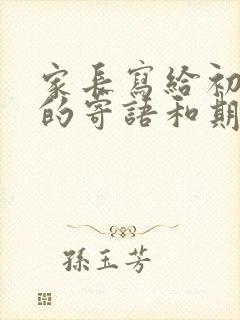 家長寫給初
的寄語和期
孫玉芳